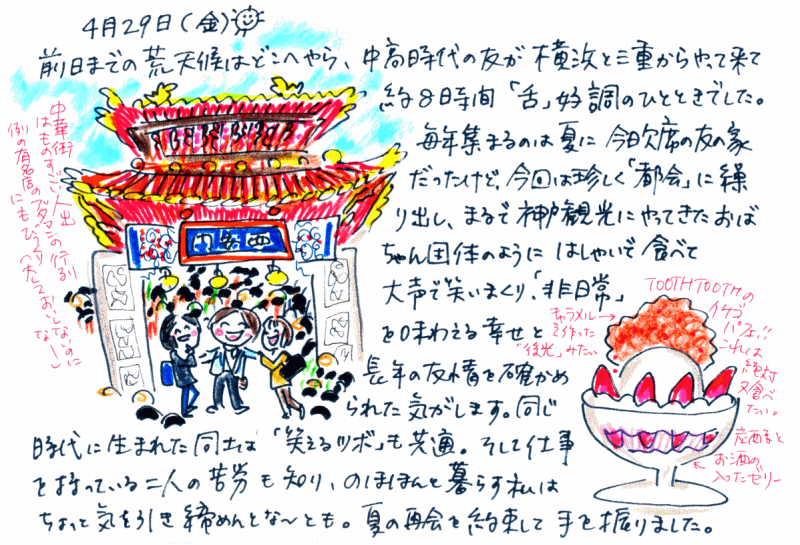 4月29日(金)
前日までの荒天候はどこへやら、中高時代の友が横浜と三重からやって来て
約8時間「舌」好調のひとときでした。
毎年集まるのは夏に今日欠席の友の家
だったけど、今回は珍しく「都会」に繰
り出し、まるで神戸観光にやってきたおば
ちゃん団体のようにはしゃいで食べて
大声で笑いまくり、「非日常」
を味わえる幸せと
長年の友情を確かめ
られた気がします。同じ
時代に生まれた同士は「笑えるツボ」も共通。そして仕事
を持っている二人の苦労も知り、のほほんと暮らす私は
ちょっと気を引き締めんとな〜とも。夏の再会を約束して手を振りました。
中華街
はものすごい人出
例の有名店のブタまんの行列
にもびっくり
TOOTH TOOTHの
イチゴ
パフェ!!
これは
絶対
又食べ
たい。
キャラメル
で作った
"後光"みたい
お酒の
入ったゼリー